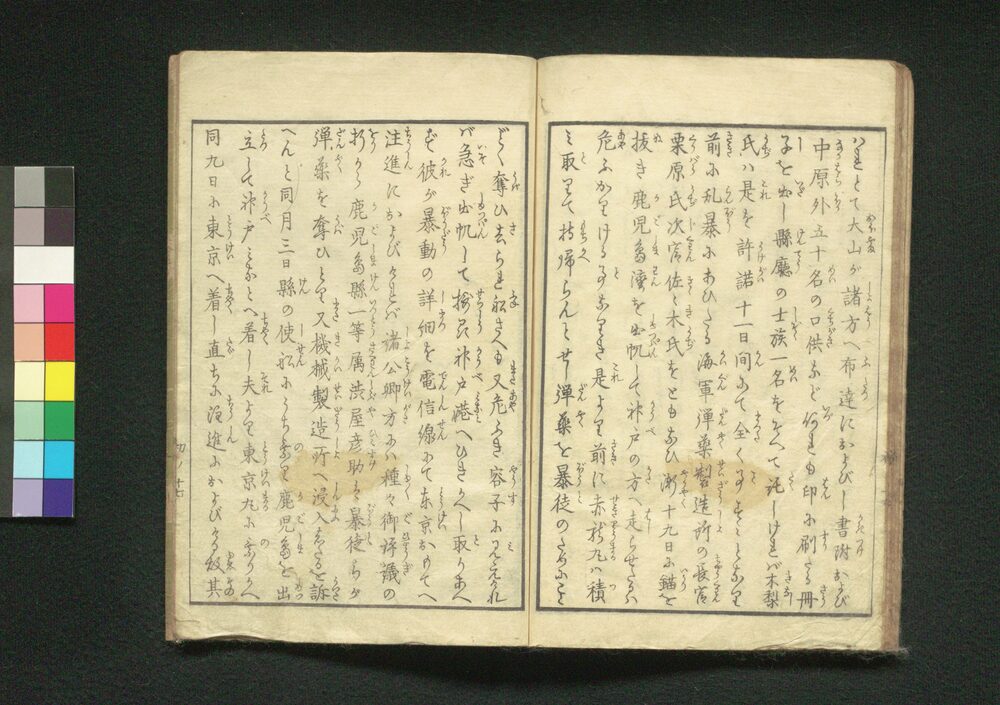 はるとて大山が諸方へ布達におよびし書附および
中原外五十名の口供など何れも印に刷たる冊
子を出し縣廳の士族一名をそへて託しければ木梨
氏は是を許諾十一日間にて全く
前に乱暴にあひたる海軍弾薬製造所の長官
栗原氏次官佐々木氏をともなひ漸々十九日に錨を
抜き鹿児島湾を出帆して神戸の方へ走らせたるハ
危ふかりける事なりき是より前に赤龍丸へ積
ミ取りて持帰らんとせし弾薬を暴徒のためにこと
ごとく奪ひ去られ船さへも又危ふき容子に見えければ
バ急ぎ出帆して摂兵神戸港へひきかへし取りあへ
ず彼が暴動の詳細を電信線にて東京おもてへ
注進におよびけれバ諸公卿方にハ種々御評議の
折から鹿児島縣一等属渋屋彦助より暴徒らが
弾薬を奪ひとり又機械製造所へ侵入したるを訴
へんと同月三日縣の使船にうち乗り鹿児島を出
立して神戸みなとへ着し夫より東京丸に乗りかへ
同九日に東京へ着し直ちに注進におよびける故其